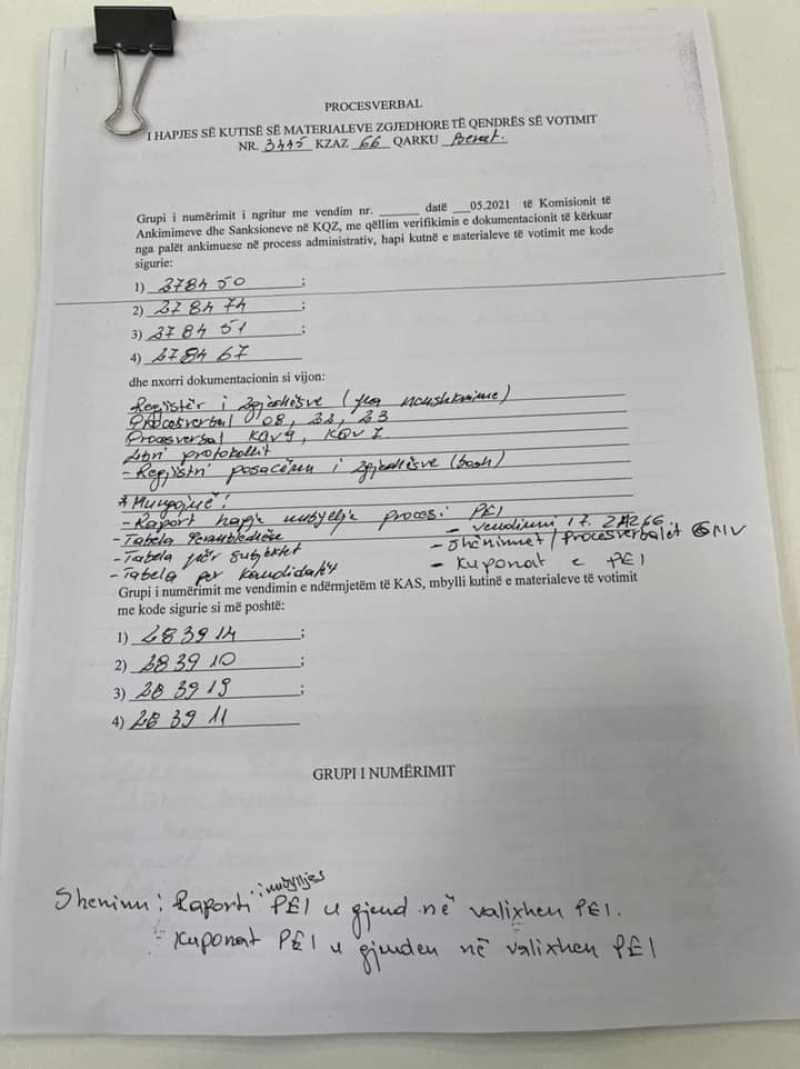 PROCESVERBAL
I HAPJES SË KUTISË SË MATERIALEVE ZGJEDHORE TË QENDRËS SË VOTIMIT
NR. 3445 KZAZ 66 QARKU Berat.
Grupi i numërimit i ngritur me vendim nr. ______ datë ___05.2021 të Komisionit të
Ankimimeve dhe Sanksioneve në KQZ, me qëllim verifikimin e dokumentacionit të kërkuar
nga palët ankimuese në process administrativ, hapi kutnë e materialeve të votimit me kode
sigurie:
1) 278450 ;
2) 278474 ;
3) 278451 ;
4) 278467
dhe nxorri dokumentacionin si vijon:
Regjistër i zgjedhësve (pa nënshkrime)
Procesverbal 08, 22, 23
Procesverbal KQV 9, KQV 7.
Libri protokollit
- Regjistri posaçëm i zgjedhësve (bosh)
* Mungojnë:
- Raport hapje mbyllje procesi PEI
- Tabela Përmbledhëse - Vendimi 17. ZAZ 66
- Tabela për subjektet - Shënimet / Procesverbalet GNV
- Tabela për kandidatët - Kuponat e PEI
Grupi i numërimit me vendimin e ndërmjetëm të KAS, mbylli kutinë e materialeve të votimit
me kode sigurie si më poshtë:
1) 283914 ;
2) 283910 ;
3) 283919 ;
4) 283911
GRUPI I NUMËRIMIT
Shenim: Raporti i mbylljes PEI u gjend në valixhen PEI.
- Kuponat PEI u gjenden në valixhen PEI